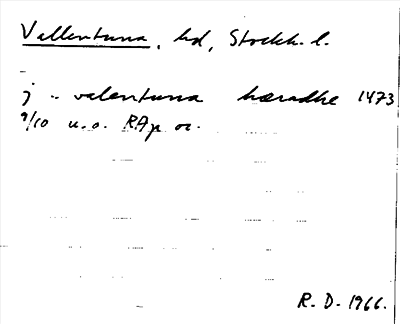 Vallentuna, hd, Stockh. l.
j .. valentuna hæradhe 1473
9/10 u.o. RAp or.
R. D. 1966.